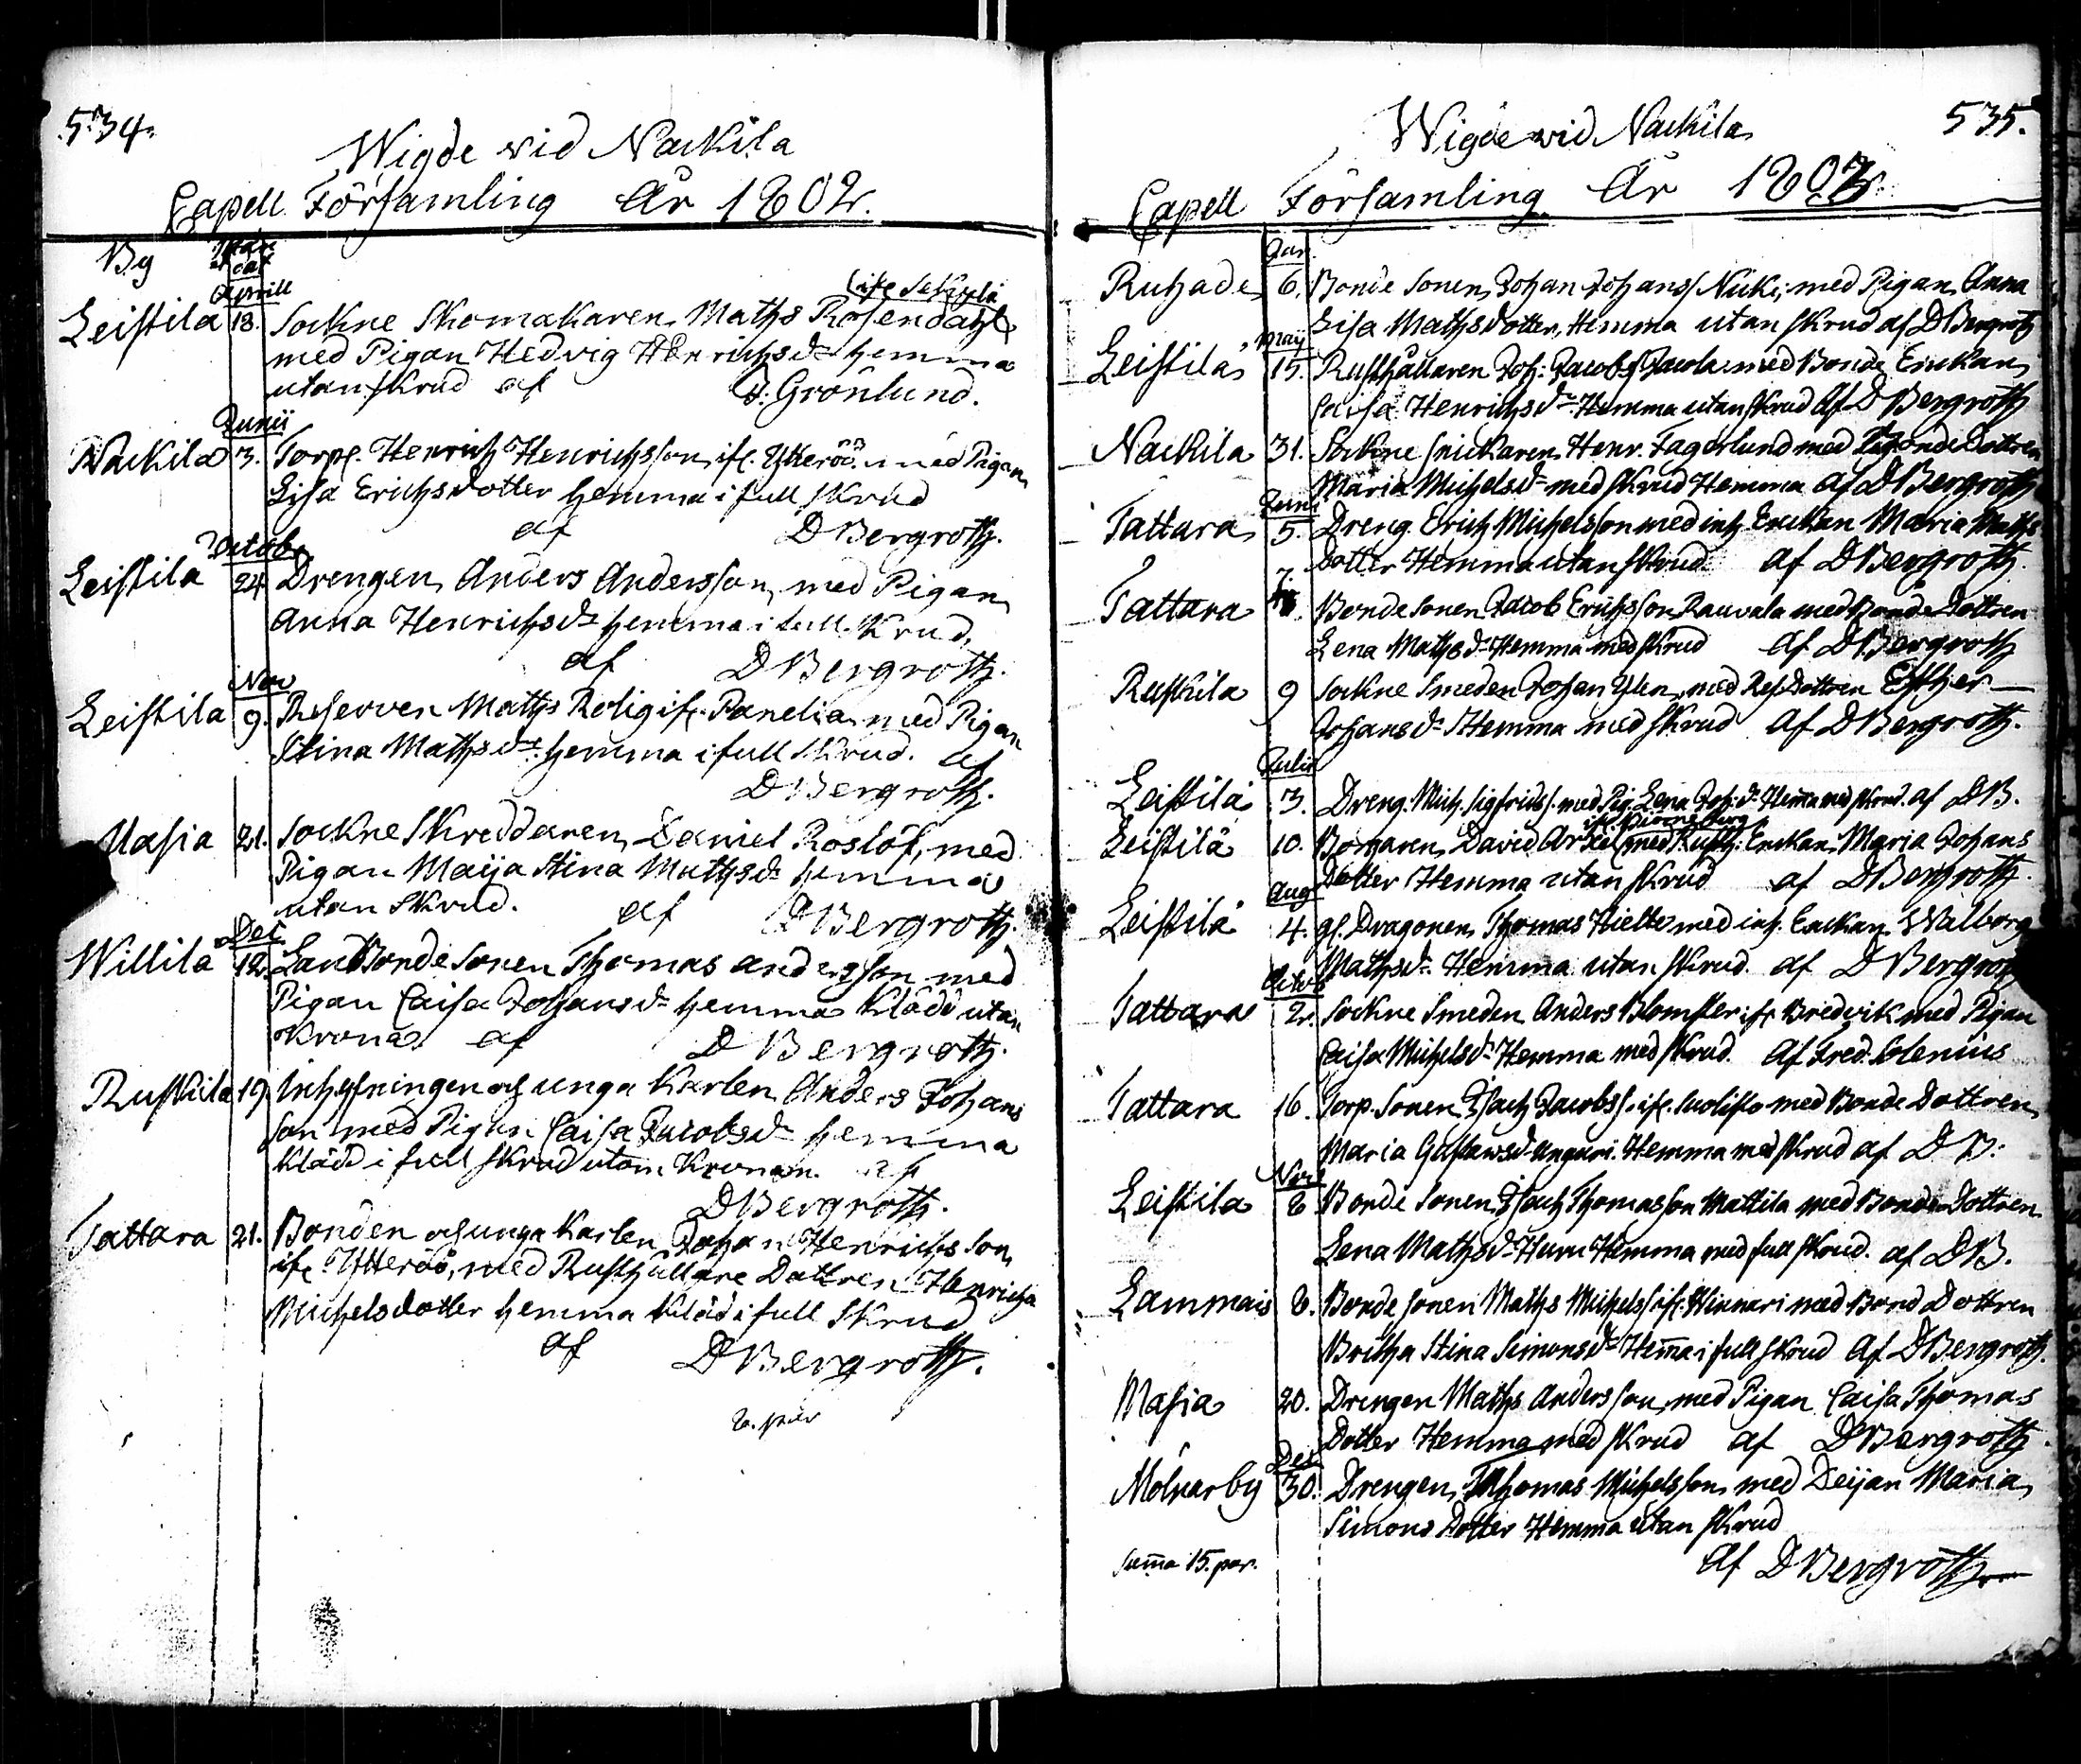 534.
Wigde vid Nackila
Capell Församling År 1802.
By
dat
Aprill
ifr Säkylä
Leistila 18. Sockne Skomakaren Maths Rosendahl
med Pigan Hedvig Henrichsdr hemma
utan skrud af Grönlund.
Junii
Nackila 3. Torp. Henrich Henrichsson ifr. Ytteröö med Pigan
Lisa Erichsdotter hemma i full skrud
af DBergroth.
Octobr
Leistila 24 Drengen Anders Andersson med Pigan
Anna Henrichsdr hemma i full Krud,
af DBergroth.
Nov
Leistila 9. Reserven Maths Rolig ifr. Panelia med Pigan
Stina Mathsdr. hemma i full skrud. af
DBergroth.
Masia 21. Sockne Skreddaren Daniel Roslöf, med
Pigan Maija Stina Mathsdr hemma
utan Skrud. af DBergroth.
Dec
Willila 12. Landbonde Sonen Thomas andersson med
Pigan Caisa Johansdr hemma Klädd utan
Krona. af DBergroth.
Ruskila 19. Inhysningen och unga Karlen Anders Johans
son med Pigan Caisa Jacobsdr hemma
Klädd i full skrud utom Kronan. af
DBergroth.
Tattara 21. Bonden och unga Karlen Johan Henrichs son
ifr Ytteröö, med Rusthållare Dottren Henrica
Michelsdotter hemma kläd i full Skrud
af DBergroth.
8. par
535.
Wigde vid Nackila
Capell Församling År 1803.
Jan
Ruhade 6. Bonde Sonen Johan Johanss Nuki, med Pigan Anna
Lisa Mathsdotter, Hemma utan skrud af DBergroth
Maij
Leistilä 15. Rusthållaren Joh: Jacobss Jacola med Bonde Enckan
Caisa Henrichsdr Hemma utan skrud af DBergroth
Nackila 31. Sockne snickaren Henr. Fagerlund med Bonde Dottren
Maria Michelsdr med skrud Hemma af DBergroth
Juni
Tattara 5. Dreng. Erich Michelsson med inh Enckan Maria Maths
dotter Hemma utan skrud. af DBergroth.
Tattara 7. Bonde Sonen Jacob Erichsson Rauvala med Bonde Dottren
Lena Mathsdr Hemma med skrud af DBergroth
Ruskila 9 Sockne Smeden Johan Ylen, med Res. Dottren Esther
Johansdr Hemma med skrud af DBergroth.
Julii
Leistilä 3. Dreng. Mich. Sigfridss. med Pig. Lena Joh:dr Hem̄a med skrud. af DB.
ifr Biörneborg
Leistilä 10. Borgaren David Arkel med Rusth: Enckan Maria Johans
Dotter Hemma utan skrud af DBergroth.
Aug
Leistilä 4. gl. Dragonen Thomas Hielte med inh. Enckan Walborg
Mathsdr. Hemma utan skrud. af DBergroth
Octob
Tattara 2. Sockne Smeden Anders Blomster ifr Bredvik med Pigan
Caisa Michelsdr Hemma med skrud. af Fred. Polenius
Tattara 16. Torp. Sonen Isach Jacobss. ifr. Suolisto med Bonde Dottren
Maria Gustawsdr Unguri. Hemma med skrud af DB:
Nov
Leistila 8 Bonde Sonen Isach Thomasson Mattila med Bonde Dottren
Lena Mathsdr Huru Hemma med full skrud. af DB.
Lammais 8. Bonde sonen Maths Michelss ifr. Hinneri med Bond Dottren
Britha Stina Simonsdr Hem̄a i full skrud af DBergroth.
Masia 20. Drengen Maths Andersson, med Pigan Caisa Thomas
Dotter Hemma med skrud af DBergroth.
Dec
Mölnarby 30. Drengen Thomas Michelsson med Deijan Maria
Simons Dotter Hemma utan skrud
Sum̄a 15. par. af DBergroth